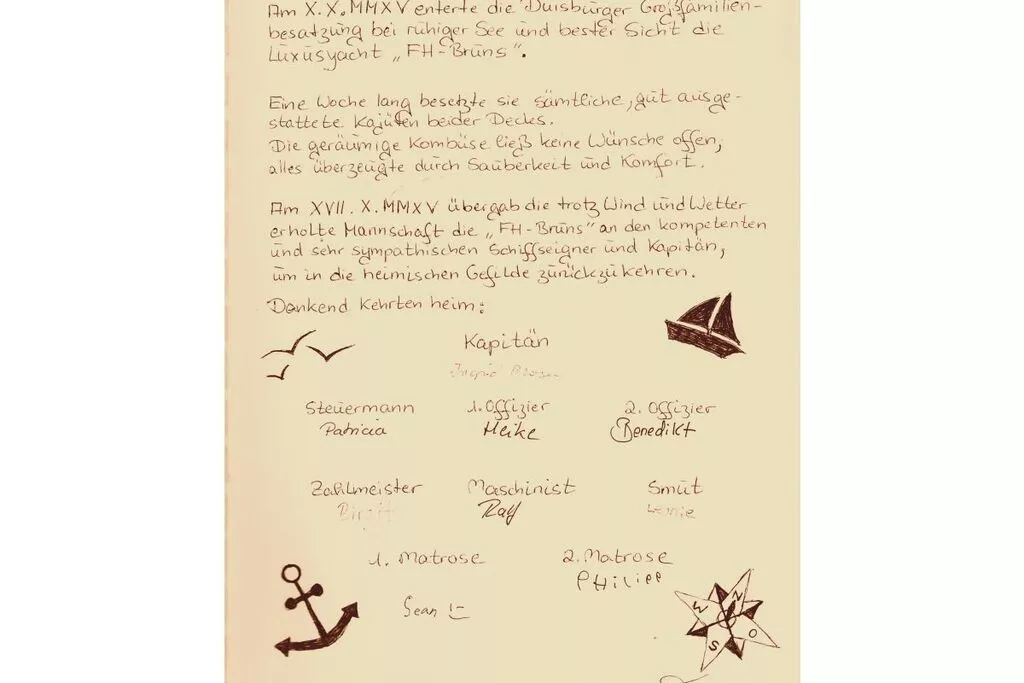 Am X.X.MMXV enterte die Duisburger Großfamilien-
besatzung bei ruhiger See und bester Sicht die
Luxusyacht „FH-Bruns".
Eine Woche lang besetzte sie sämtliche, gut ausge-
stattete Kajüten beider Decks.
Die geräumige Kombüse ließ keine Wünsche offen,
alles überzeugte durch Sauberkeit und Komfort.
Am XVII.X.MMXV übergab die trotz Wind und Wetter
erholte Mannschaft die „FH-Bruns" an den kompetenten
und sehr sympathischen Schiffseigner und Kapitän,
um in die heimischen Gefilde zurückzukehren.
Dankend kehrten heim:
Kapitän
Steuermann 1. Offizier 2. Offizier
Patricia Heike Benedikt
Zahlmeister Maschinist Smut
Birgit Ralf
1. Matrose 2. Matrose
PHiLiPP
Sean
N
W O
S